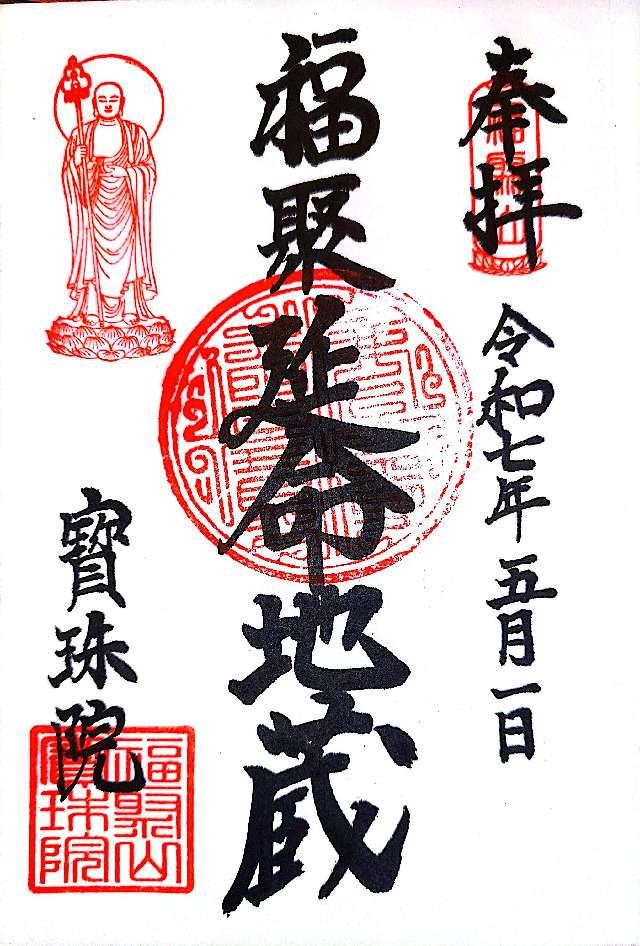 奉拝
令和七年五月一日
福聚延命地蔵
寳珠院
福聚山
福聚山
寳珠院